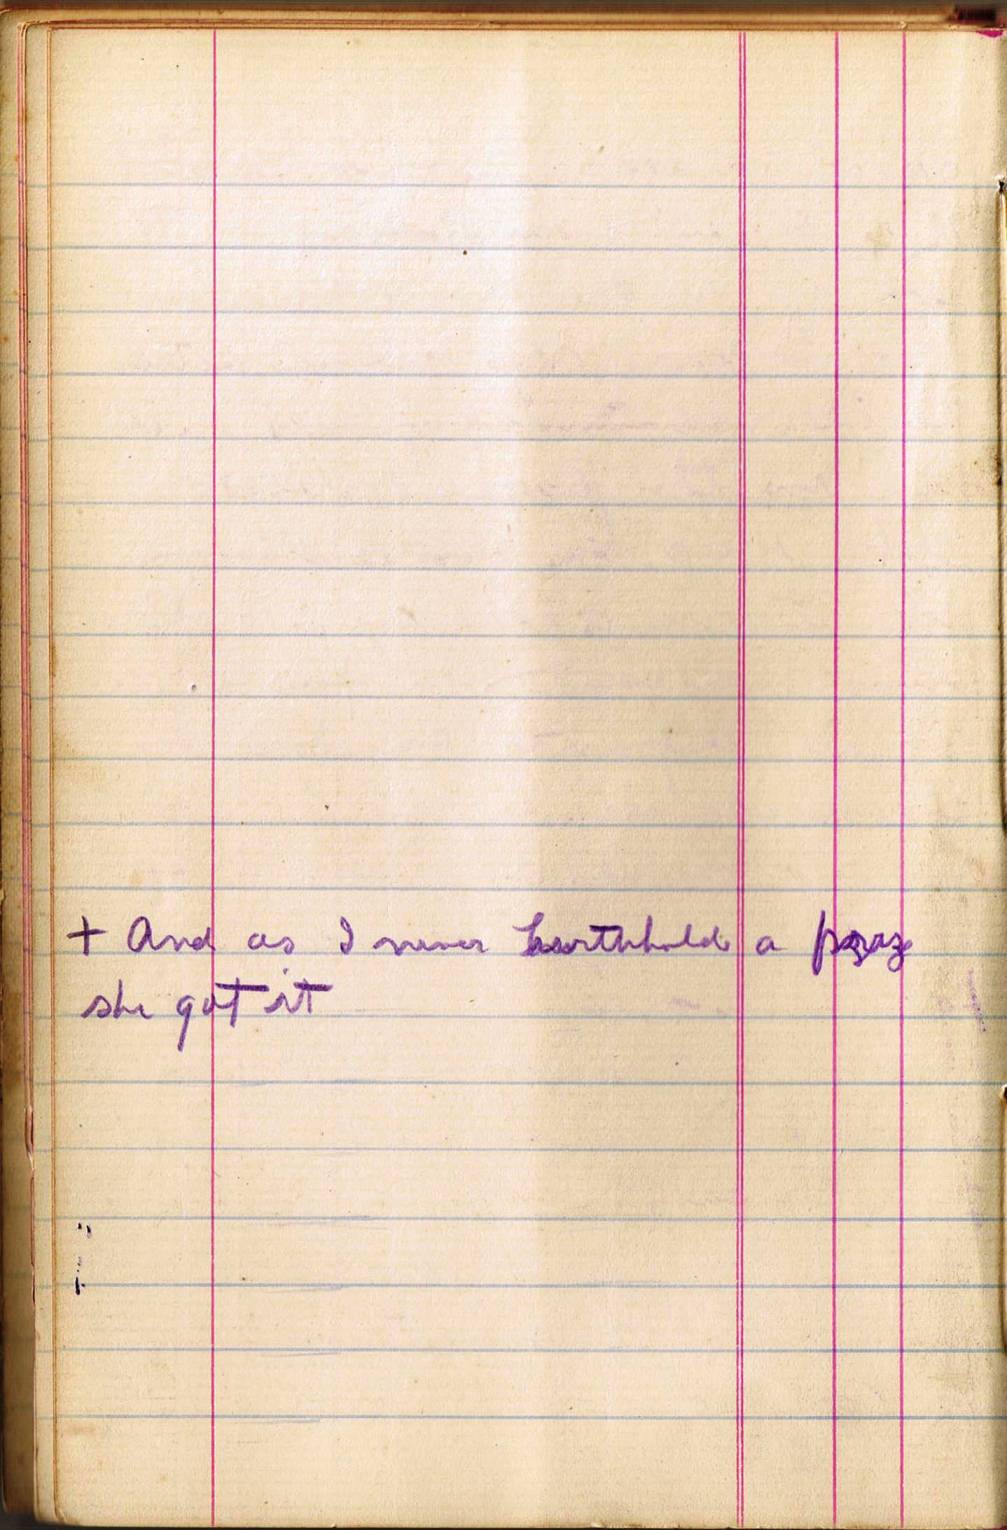 + And as I never withhold a
she got it